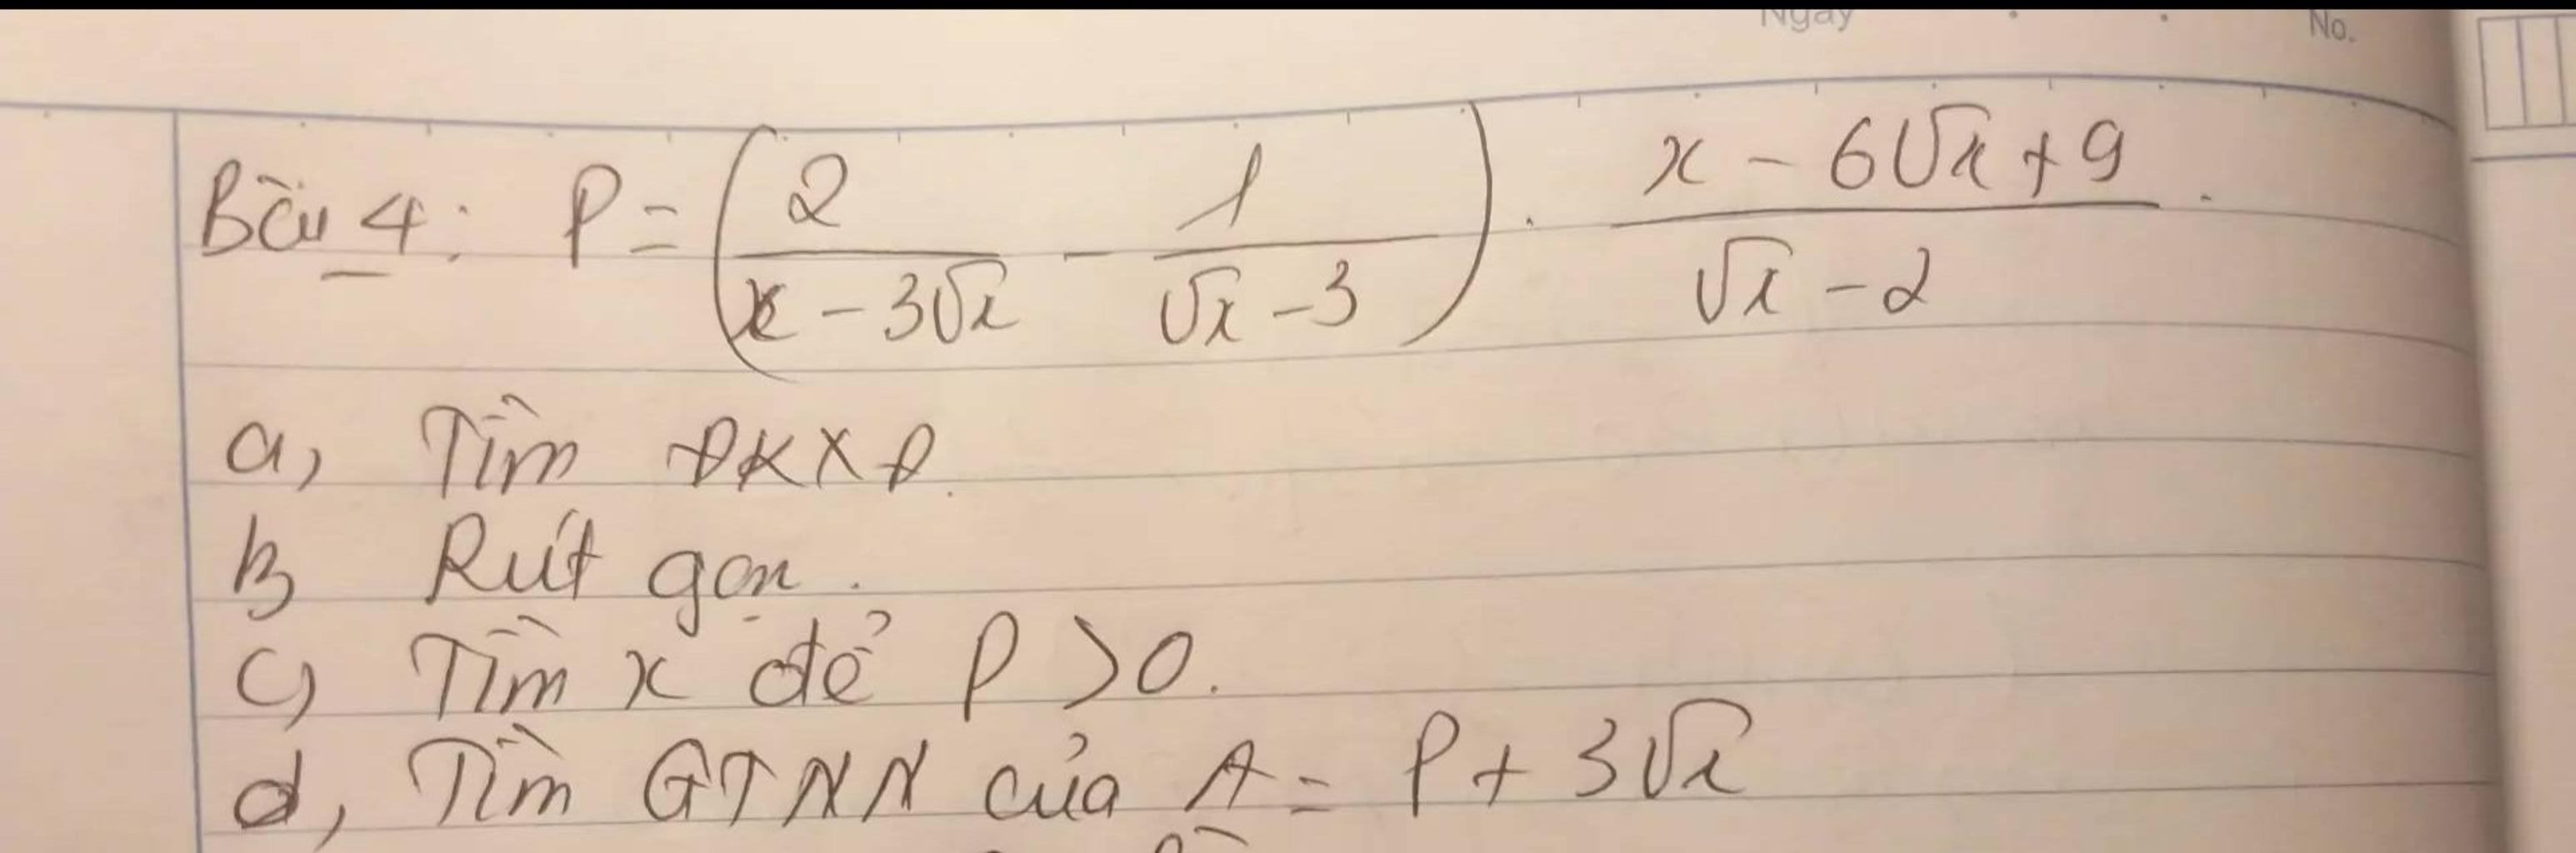 Ngày No.
Bài 4: P = (2/(x - 3√x) - 1/(√x - 3)) . (x - 6√x + 9)/(√x - 2) .
a, Tìm ĐKXĐ.
b, Rút gọn.
c, Tìm x để P > 0.
d, Tìm GTNN của A = P + 3√x